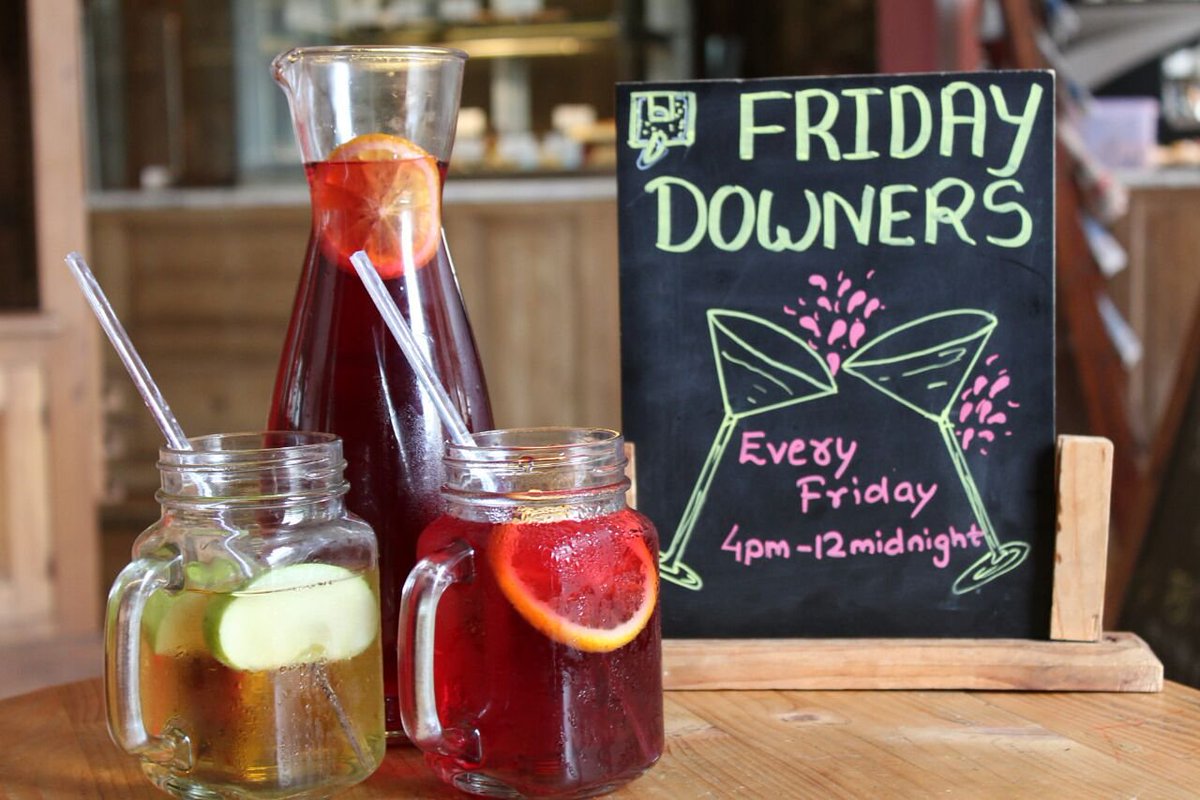 FRIDAY
DOWNERS
Every
Friday
4pm-12midnight